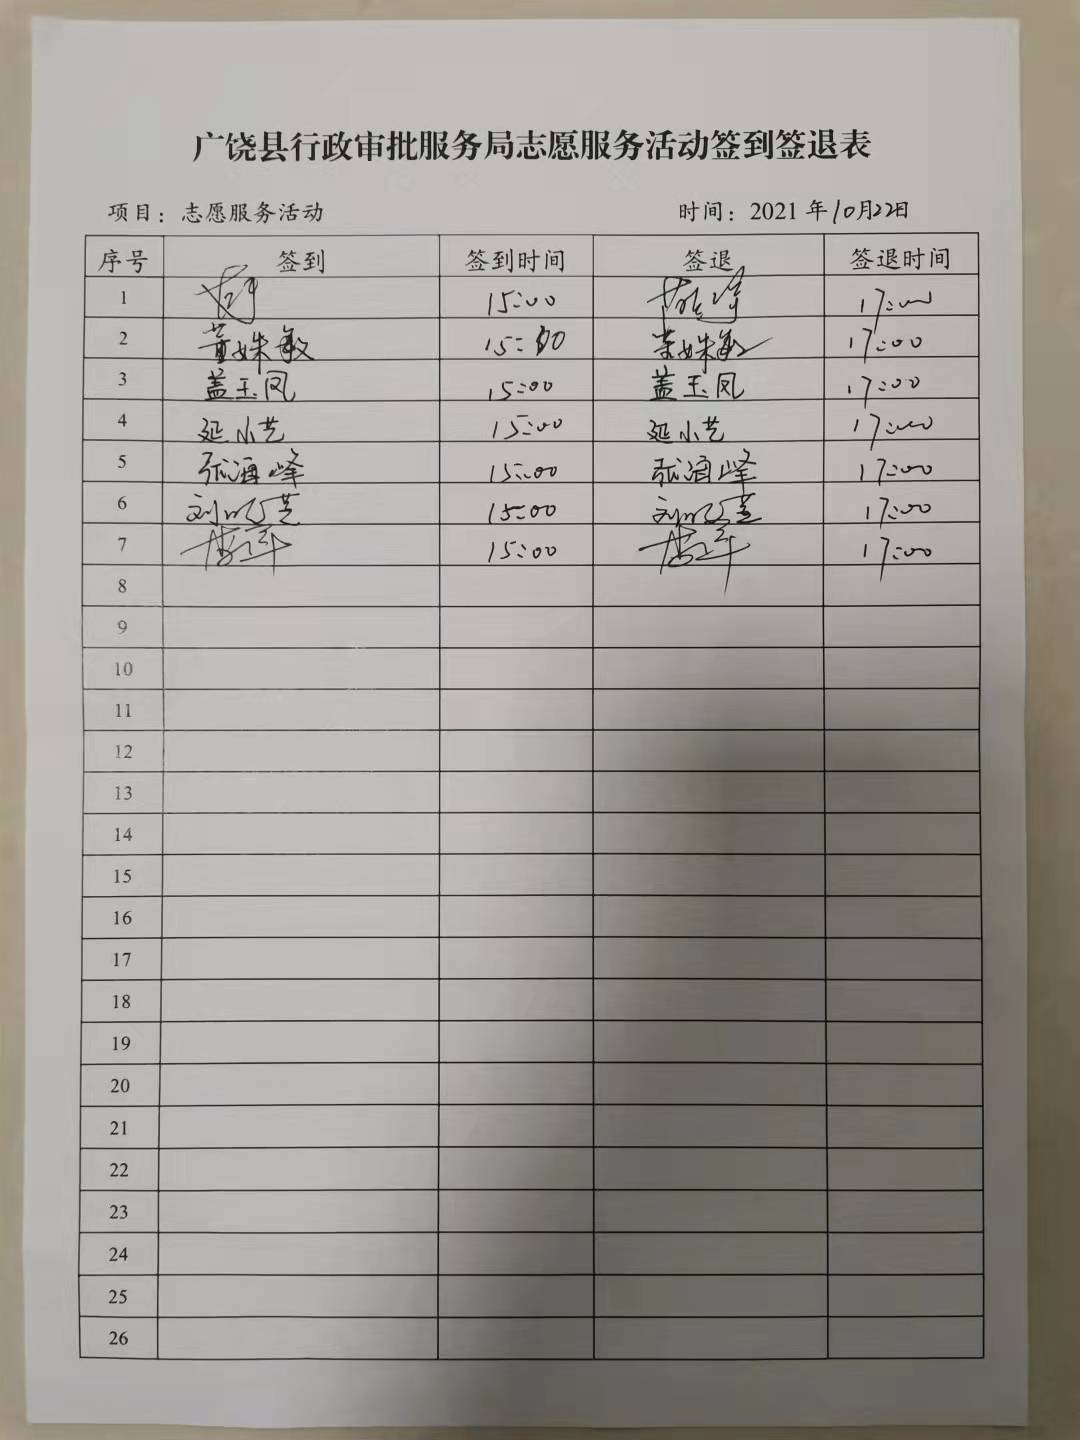 广饶县行政审批服务局志愿服务活动签到签退表
项目：志愿服务活动 时间：2021年10月22日
序号 签到 签到时间 签退 签退时间
1 15:00 17:00
2 董姝敏 15:00 董姝敏 17:00
3 盖玉凤 15:00 盖玉凤 17:00
4 延小艺 15:00 延小艺 17:00
5 张海峰 15:00 张海峰 17:00
6 15:00 17:00
7 15:00 17:00
8
9
10
11
12
13
14
15
16
17
18
19
20
21
22
23
24
25
26